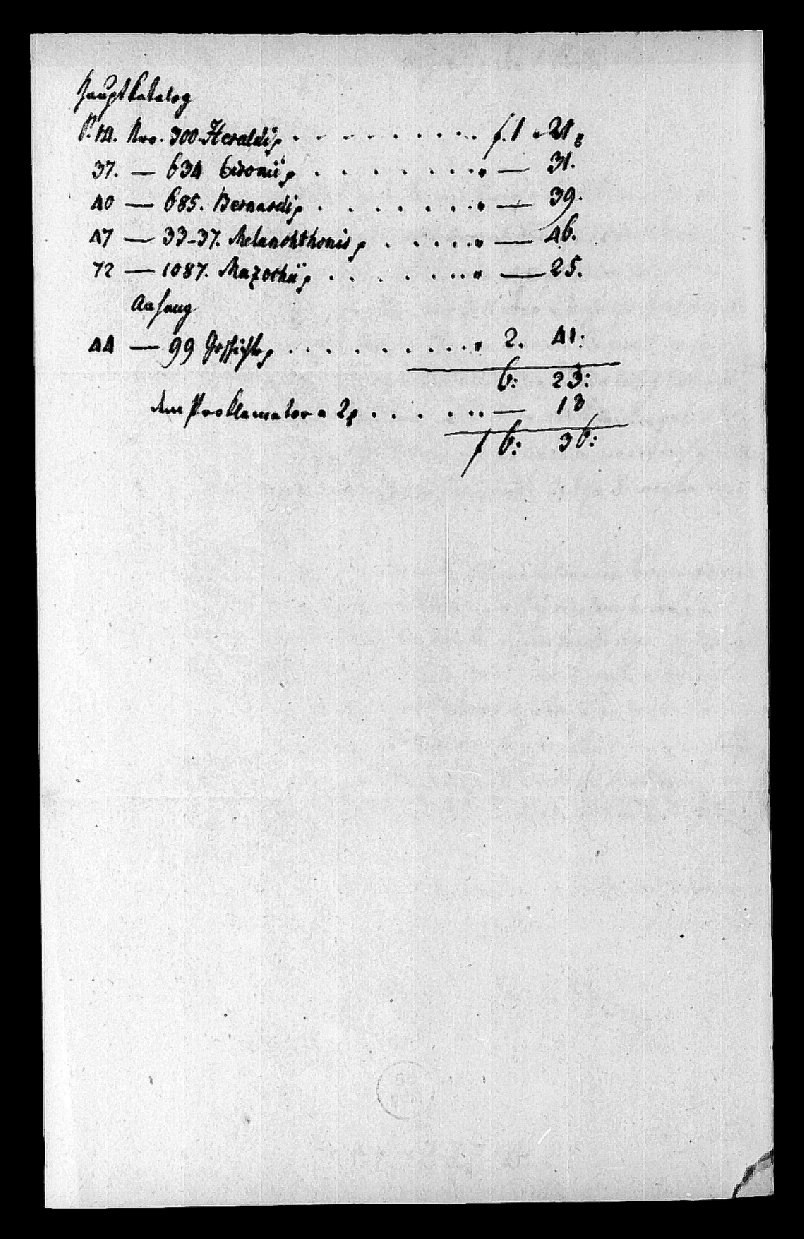 Hauptkatalog
P. 14. Nro. 300 Heraldi, . . . . . . . . . . f. 1 . 21.
37. — 634 Sidonii, . . . . . . . . . — 31.
40 — 685. Bernardi, . . . . . . . . — 39.
47 — 33-37. Melanchthonis, . . . . . — 46.
72 — 1087. Mazochii, . . . . . . . — 25.
Anhang
44 — 99 . . . . . . . . . . 2. 41:
6: 23:
dem Proklamator a 2 . . . . . . — 13
f 6: 36: